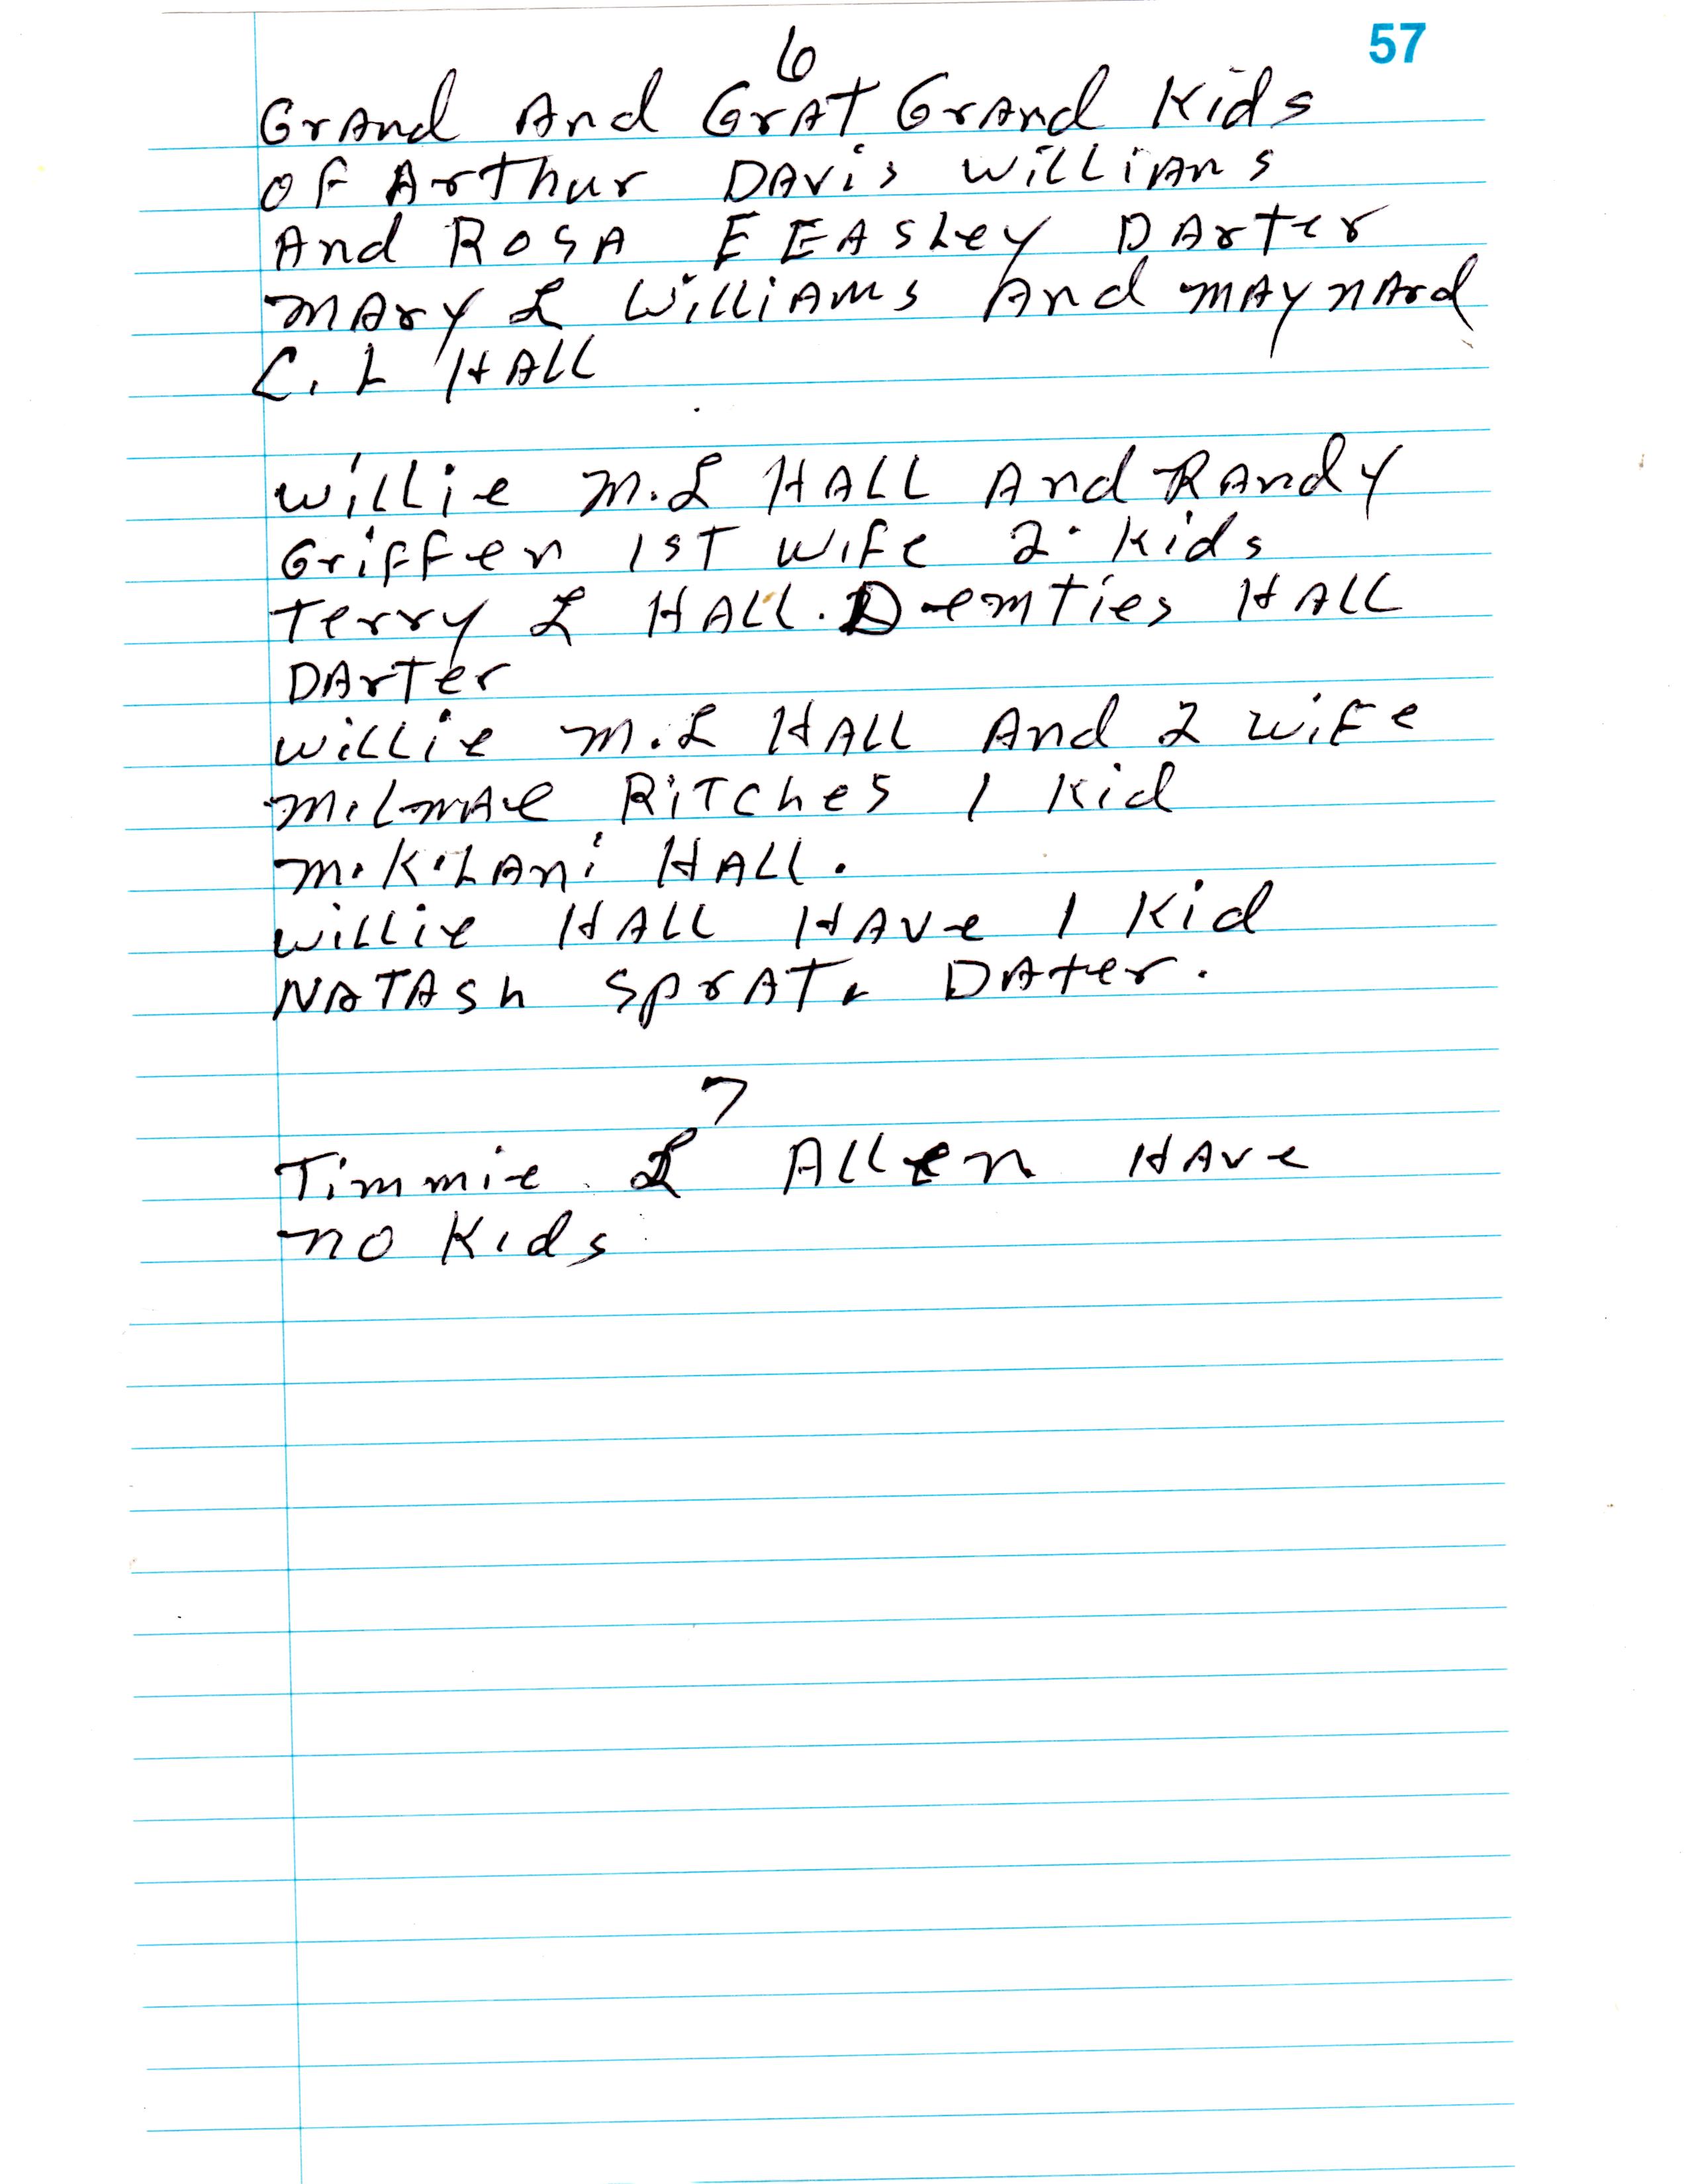 57
6
Grand And Grat Grand Kids
OF Arthur Davis Willians
And Rosa E EAshey Darter
Mary L Williams And Maynard
C. L HALL
Willie M. L HALL And Randy
Griffen 1ST Wife 2 Kids
Terry L HALL. Demties HALL
Darter
Willie M. L HALL And 2 Wife
Milmae Ritches 1 Kid
M.K.Lani HALL.
Willie HALL HAVE 1 Kid
NATASh Sprat. Dater.
7
Timmie L Allen Have
no Kids